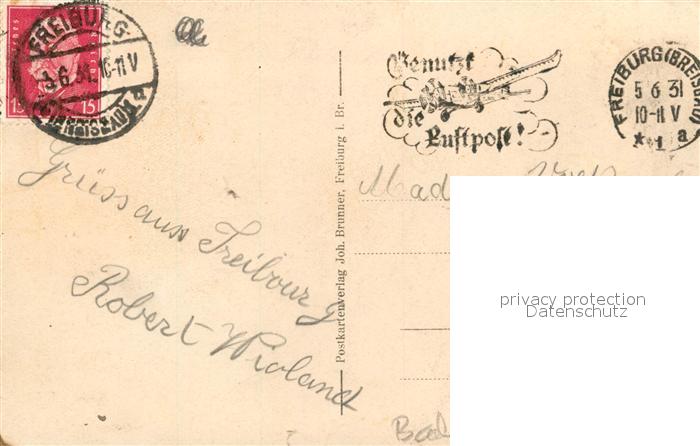 FREIBURG
5.6.31.10-11 V
15 15
Benutzt
die
Luftpost!
FREIBURG (BREISGAU)
5 6 31
10-11 V
* 1 a
Grüss aus Freibourg
Robert Wioland
Postkartenverlag Joh. Brunner, Freiburg i. Br.
Mad
Bad
privacy protection
Datenschutz